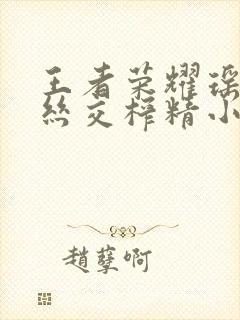 王者荣耀瑶
丝交榨精小
趙孽啊